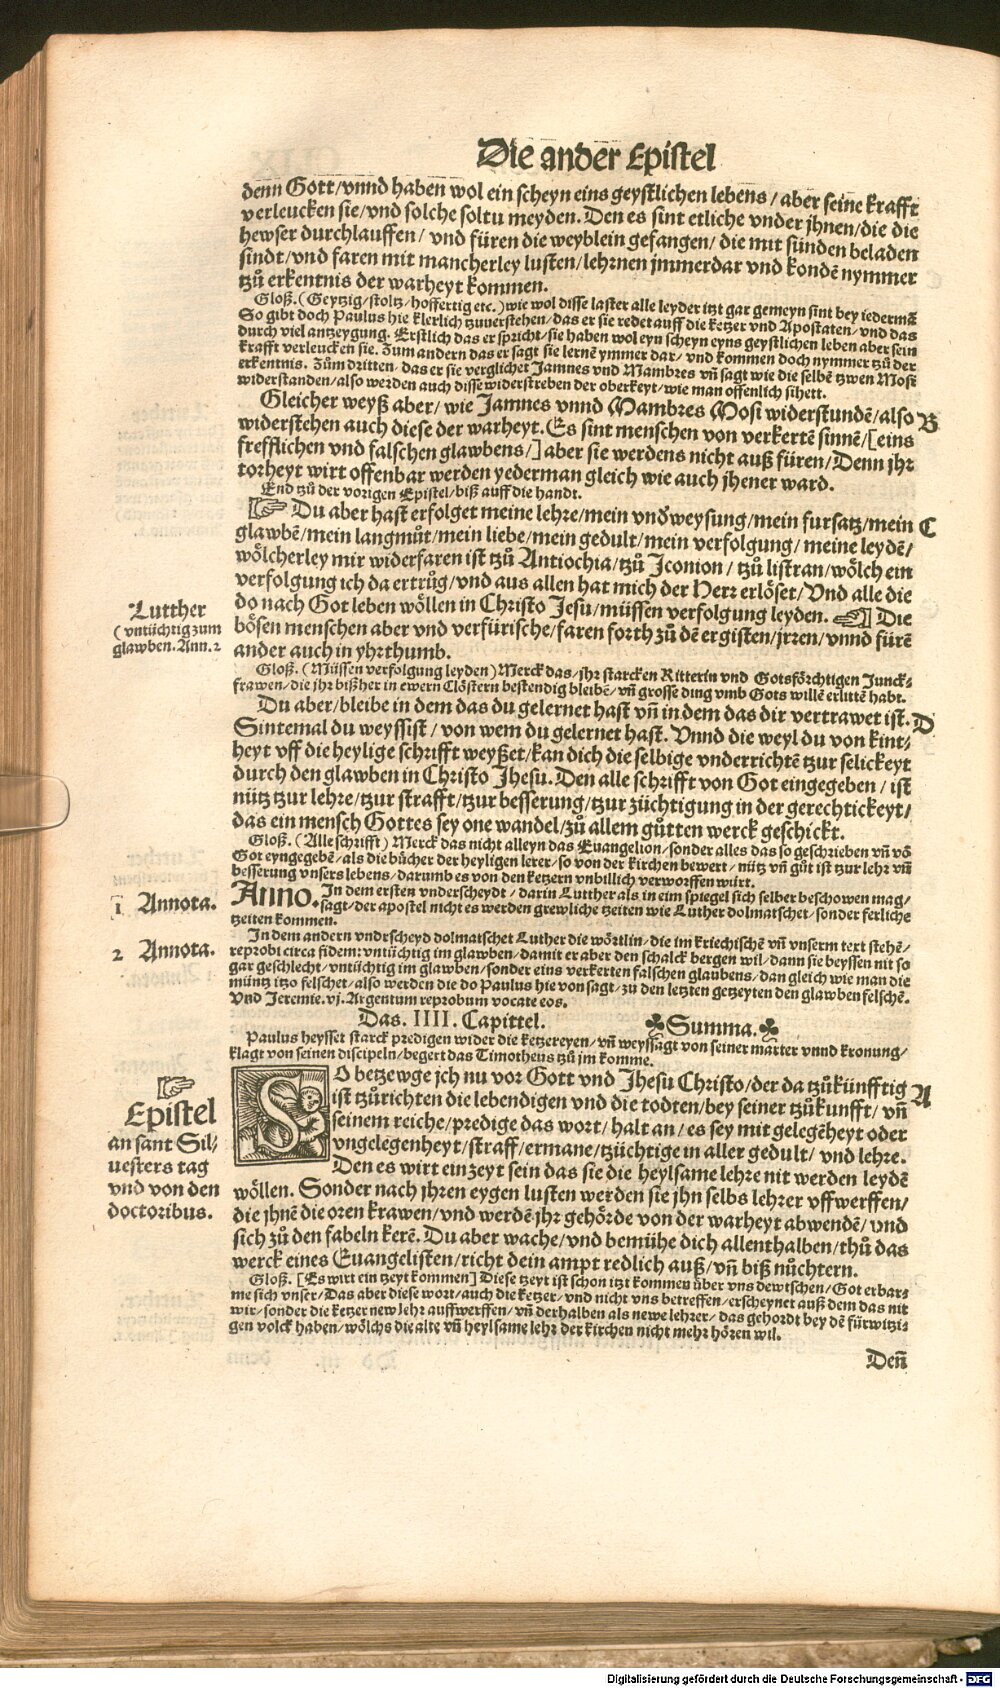 Die ander Epistel
denn Gott/vnnd haben wol ein scheyn eins geystlichen lebens/aber seine krafft
verleucken sie/vnd solche soltu meyden. Den es sint etliche vnder jhnen/die die
hewser durchlauffen/ vnd füren die weyblein gefangen/ die mit sünden beladen
sindt/vnd faren mit mancherley lusten/lehrnen jmmerdar vnd kondē nymmer
tzů erkentnis der warheyt kommen.
Gloß. (Geytzig/stoltz/hoffertig etc.) wie wol disse laster alle leyder itzt gar gemeyn sint bey iedermā
So gibt doch Paulus hie klerlich tzuuerstehen/das er sie redet auff die ketzer vnd Apostaten/vnd das
durch viel antzeygung. Erstlich das er spricht/sie haben wol eyn scheyn eyns geystlichen leben aber sein
krafft verleucken sie. Zum andern das er sagt sie lernē ymmer dar/ vnd kommen doch nymmer tzů der
erkentnis. Zům dritten/das er sie verglichet Jamnes vnd Mambres vñ sagt wie die selbē tzwen Mosi
widerstanden/also werden auch disse widerstreben der oberkeyt/wie man offenlich sihett.
Gleicher weyß aber/ wie Jamnes vnnd Mambres Mosi widerstundē/also B
widerstehen auch diese der warheyt. Es sint menschen von verkertē sinnē/[eins
frefflichen vnd falschen glawbens/] aber sie werdens nicht auß füren/Denn jhr
torheyt wirt offenbar werden yederman gleich wie auch jhener ward.
End tzů der vorigen Epistel/biß auff die handt.
☞ Du aber hast erfolget meine lehre/mein vnd̄weysung/mein fursatz/mein C
glawbē/mein langmůt/mein liebe/mein gedult/mein verfolgung/ meine leydē/
wölcherley mir widerfaren ist tzů Antiochia/tzů Jconion/ tzů listran/wölch ein
verfolgung ich da ertrůg/vnd aus allen hat mich der Herr erlöset/Vnd alle die
Lutther
(vntüchtig zum
glawben. Ann. 2
do nach Got leben wöllen in Christo Jesu/müssen verfolgung leyden. ☜ Die
bösen menschen aber vnd verfürische/faren forth zů dē ergisten/jrren/vnnd fürē
ander auch in yhrthumb.
Gloß. (Müssen verfolgung leyden) Merck das/jhr starcken Ritterin vnd Gotsförchtigen Junck-
frawen/die jhr bißher in ewern Clöstern bestendig bleibē/vñ grosse ding vmb Gots willē erlittē habt.
Du aber/bleibe in dem das du gelernet hast vñ in dem das dir vertrawet ist. D
Sintemal du weyssist/ von wem du gelernet hast. Vnnd die weyl du von kint-
heyt vff die heylige schrifft weyßet/kan dich die selbige vnderrichtē tzur selickeyt
durch den glawben in Christo Jhesu. Den alle schrifft von Got eingegeben/ ist
nütz tzur lehre/tzur strafft/tzur besserung/tzur züchtigung in der gerechtickeyt/
das ein mensch Gottes sey one wandel/zů allem gůtten werck geschickt.
Gloß. (Alle schrifft) Merck das nicht alleyn das Euangelion/sonder alles das so geschrieben vñ vō
Got eyngegebē/als die bücher der heyligen lerer/so von der kirchen bewert/ nütz vñ gůt ist tzur lehr vñ
besserung vnsers lebens/darumb es von den ketzern vnbillich verworffen würt.
1 Annota.
Anno. In dem ersten vnderscheydt/darin Lutther als in eim spiegel sich selber beschowen mag/
sagt/der apostel nicht es werden grewliche tzeiten wie Luther dolmatschet/sonder ferliche
tzeiten kommen.
2 Annota.
In dem andern vndrscheyd dolmatschet Luther die wörtlin/die im kriechischē vñ vnserm text stehē/
reprobi circa fidem: vntüchtig im glawben/damit er aber den schalck bergen wil/dann sie beyssen nit so
gar geschlecht/vntüchtig im glawben/sonder eins verkerten falschen glaubens/dan gleich wie man die
müntz itzo felschet/also werden die do Paulus hie von sagt/zu den letzten getzeyten den glawben felschē.
Vnd Jeremie. vj. Argentum reprobum vocate eos.
Das. IIII. Capittel. ♣Summa.♣
Paulus heysset starck predigen wider die ketzereyen/vñ weyssagt von seiner marter vnnd kronung/
klagt von seinen discipeln/begert das Timotheus tzů jm komme.
☞
Epistel
an sant Sil-
uesters tag
vnd von den
doctoribus.
SO betzewge jch nu vor Gott vnd Jhesu Christo/der da tzůkünfftig A
ist tzůrichten die lebendigen vnd die todten/bey seiner tzůkunfft/ vñ
seinem reiche/predige das wort/halt an/es sey mit gelegēheyt oder
vngelegenheyt/straff/ermane/tzüchtige in aller gedult/ vnd lehre.
Den es wirt ein zeyt sein das sie die heylsame lehre nit werden leydē
wöllen. Sonder nach jhren eygen lusten werden sie jhn selbs lehrer vffwerffen/
die jhnē die oren krawen/vnd werdē jhr gehörde von der warheyt abwendē/vnd
sich zů den fabeln kerē. Du aber wache/vnd bemühe dich allenthalben/thů das
werck eines Euangelisten/richt dein ampt redlich auß/vñ biß nůchtern.
Gloß. [Es wirt ein tzeyt kommen] Diese tzeyt ist schon itzt kommen über vns dewtschen/Got erbar-
me sich vnser/Das aber diese wort/auch die ketzer/vnd nicht vns betreffen/erscheynet auß dem das nit
wir/sonder die ketzer new lehr auffwerffen/vñ derhalben als newe lehrer/das gehordt bey dē fürwitzi-
gen volck haben/wölchs die alte vñ heylsame lehr der kirchen nicht mehr hören wil.
Deñ
Digitalisierung gefördert durch die Deutsche Forschungsgemeinschaft - DFG